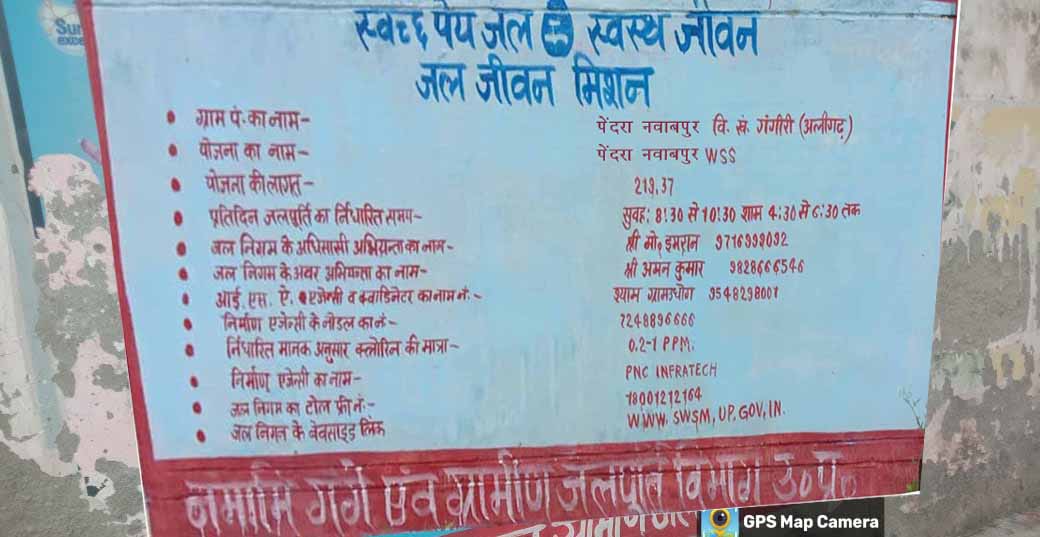 Sun
स्वच्छ पेय जल स्वस्थ जीवन
जल जीवन मिशन
• ग्राम पं. का नाम- पेंदरा नवाबपुर वि. खं. गंगीरी (अलीगढ़)
• योजना का नाम- पेंदरा नवाबपुर WSS
• योजना की लागत- 219,37
• प्रतिदिन जलपूर्ति का निर्धारित समय- सुवह: 8:30 से 10:30 शाम 4:30 से 6:30 तक
• जल निगम के अधिसासी अभियन्ता का नाम- श्री मो० इमरान 9716998092
• जल निगम के अवर अभियन्ता का नाम- श्री अमन कुमार 9828666546
• आई. एस. ऐ. एजेन्सी व क्वाडिनेटर का नाम नं.- श्याम ग्रामउधोग 9548298001
• निर्माण एजेन्सी के नोडल का नं- 7248896666
• निर्धारित मानक अनुसार क्लोरिन की मात्रा- 0.2-1 PPM.
• निर्माण एजेन्सी का नाम- PNC INFRATECH
• जल निगम का टोल फ्री नं:- 18001212164
• जल निगम के वेवसाइड लिंक WWW. SWSM, UP. GOV, IN.
नमामि गंगे एवं ग्रामीण जलपूर्ति विभाग उ० प्र०
GPS Map Camera